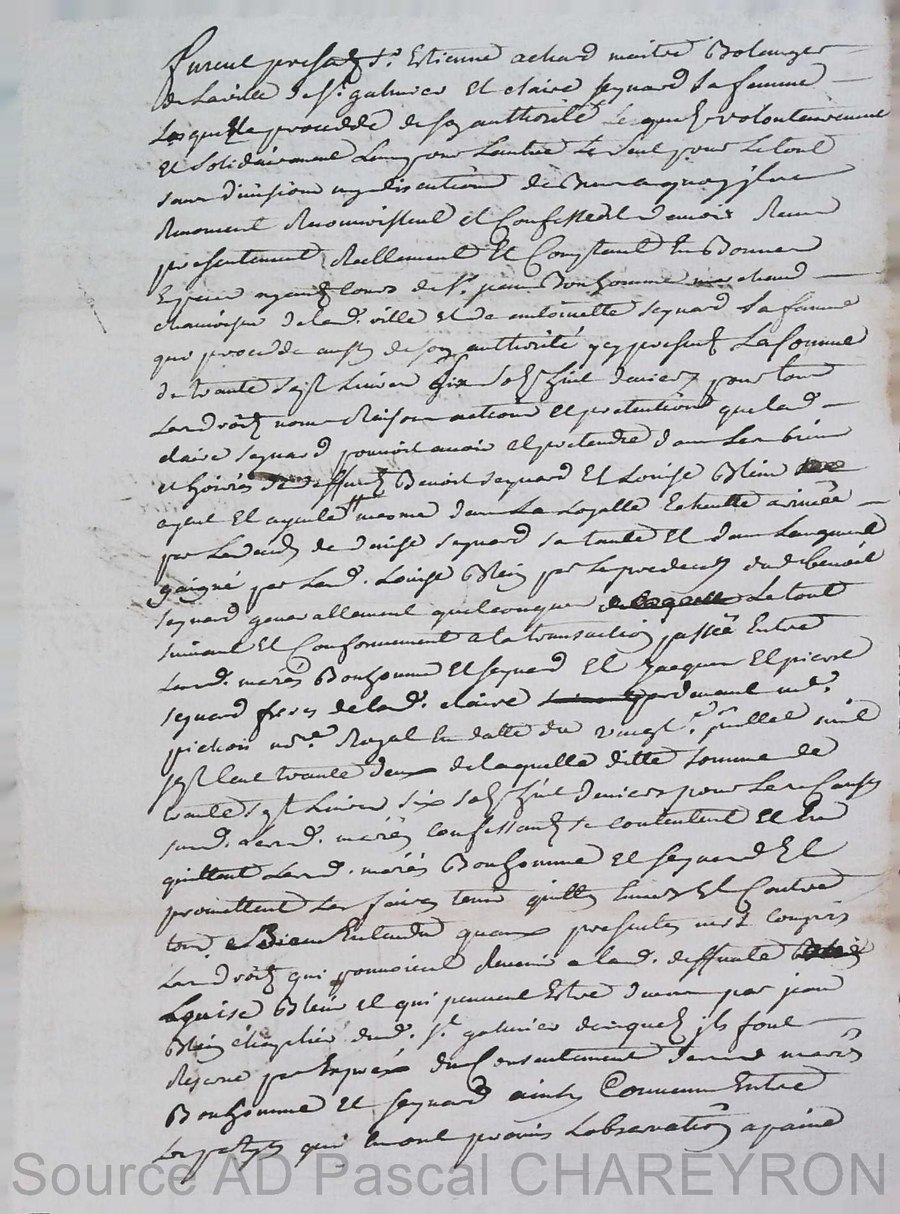 furent presents Sr. Estienne achard maitre Bolanger
de La ville de St. galmier Et claire seynard Sa femme
Laquelle procedde de son authorité Lesquels volontairement
Et Solidairement L'un pour Lautre Le Seul pour Le tout
sans division ny discution de Biens a quoy ils
Renoncent Reconnoissent et Confessent d'avoir Receu
presentement Reellement Et Comptant En Bonnes
Especes ayant cours de Sr. jean Bonhomme marchand
de lad. ville Et de antoinette seynard Sa femme
qui procedde aussy de son authorité ycy presents La Somme
de trante sept Livres six sols huit deniers pour tous
Les droits noms Raisons actions et pretentions que lad.
claire seynard pouvoit avoir et pretendre dans Les biens
et hoiries de deffunts Benoit seynard Et Louise Blein
ayeul Et ayeulle mesme dans La Eschutte arrivée
par Le deceds de seynard sa tante Et dans Laugment
gaigné par Lad. Louise Blein par Le predeceds dud. benoit
seynard generallement quelconques Le tout
suivant Et Conformement a la transaction passée Entre
Lesd. mariés Bonhomme Et seynard Et jacques Et pierre
seynard freres de lad. claire pardevant
pichon Royal En datte du vingt juillet mil
sept cent trante deux de laquelle ditte somme de
trante sept Livres six sols huit deniers pour Les Causes
susd. Lesd. mariés confessants se contentent Et En
quittent Lesd. mariés Bonhomme et seynard Et
promettent Les faires tenir quittes Envers Et Contre
tous Bien Entendu quaux presentes n'est compris
Les droits qui pouvoient Revenir a lad. deffunte
Louise Blein et qui peuvent Estre deus par jean
Blein dud. St. galmier desquels ils font
Reserve par Exprés du Consentement desd. mariés
Bonhomme Et seynard ainsy Convenu Entre
Les partyes qui En ont promis Lobservation a paine
Source AD Pascal CHAREYRON